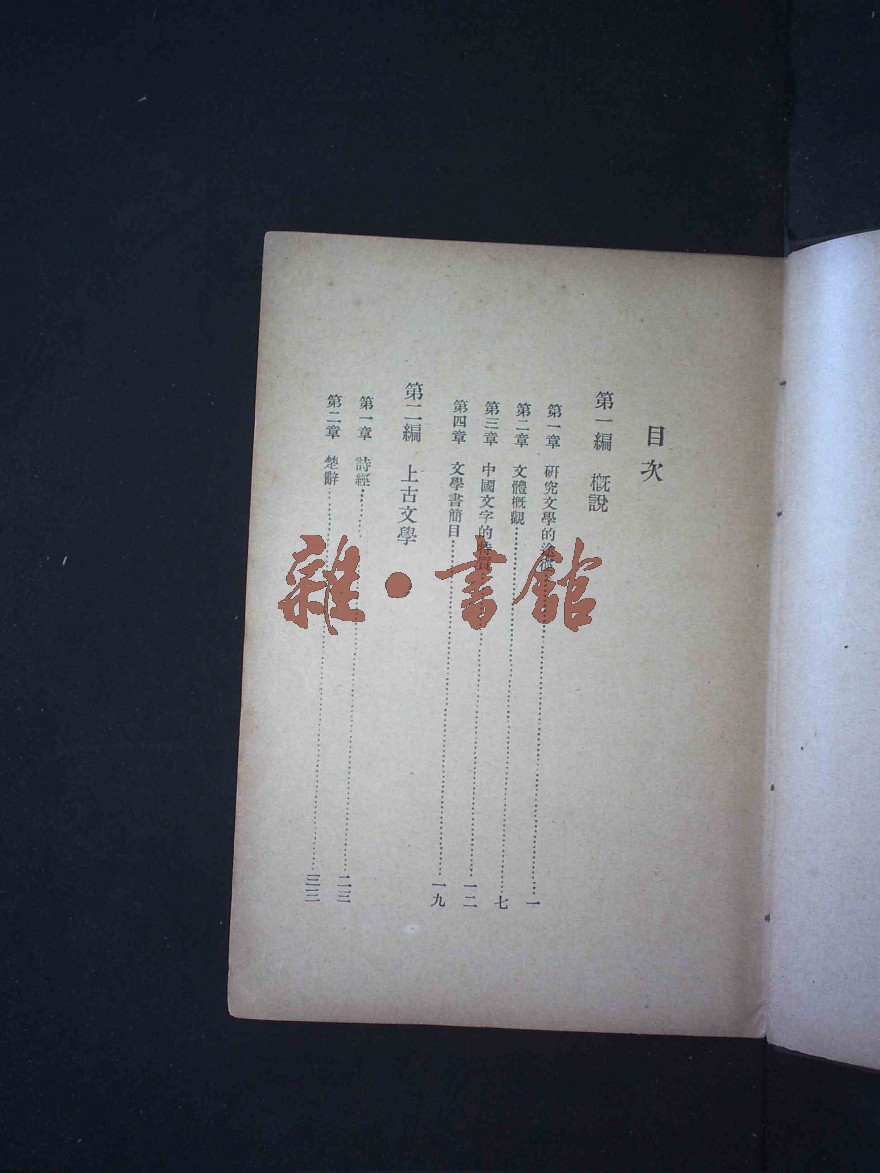 目次
第一編　概說
第一章　研究文學的途徑…………一
第二章　文體概觀…………七
第三章　中國文字的特質…………一二
第四章　文學書簡目…………一九
第二編　上古文學
第一章　詩經…………二三
第二章　楚辭…………三三
雜·書館